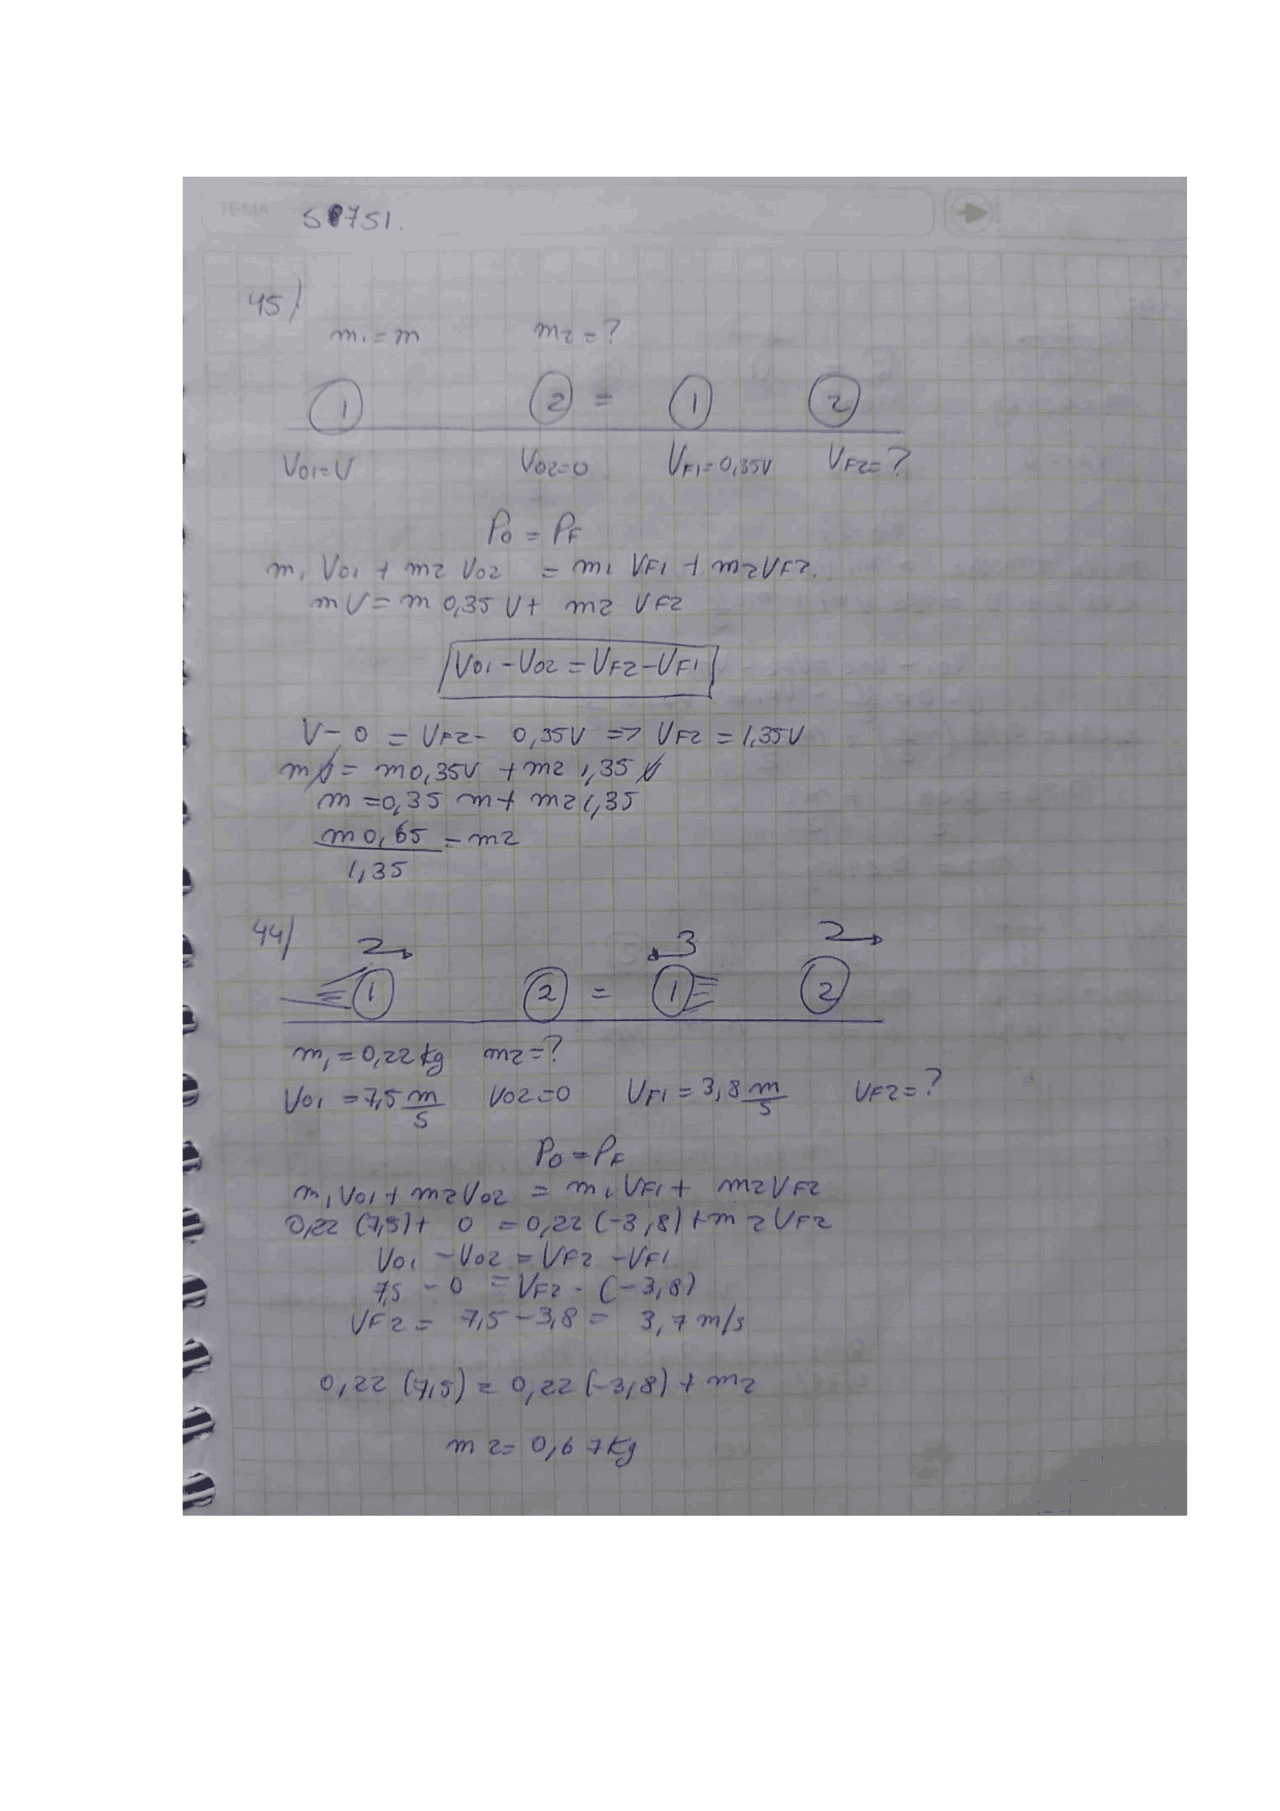 TEMA 58751.
45)
m₁=m m2=?
1 2 = 1 2
Vo1=V Vo2=0 VF1=0,35V VF2=?
Po = PF
m₁ Vo1 + m2 Vo2 = m1 VF1 + m2VF2.
mV=m 0,35 V+ m2 VF2
Vo1-Vo2=VF2-VF1
V-0 = VF2- 0,35V => VF2 = 1,35V
mV= m0,35V + m2 1,35 V
m =0,35 m+ m2 1,35
m 0,65 = m2
1,35
44)
2 3 2
1 2 = 1 2
m₁=0,22kg m2=?
Vo1 =7,5 m/s Vo2=0 VF1=3,8 m/s VF2=?
Po=PF
m₁Vo1+m2Vo2 = m1VF1+ m2VF2
0,22 (7,5)+ 0 =0,22(-3,8)+m2VF2
Vo1 -Vo2 = VF2 -VF1
7,5 - 0 = VF2 - (-3,8)
VF2= 7,5-3,8= 3,7 m/s
0,22 (7,5)= 0,22 (-3,8) + m2
m2= 0,67kg